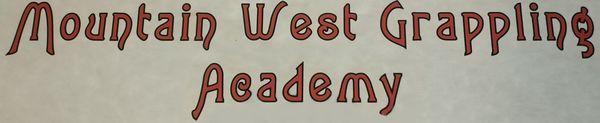 Mountain West Grappling
Academy